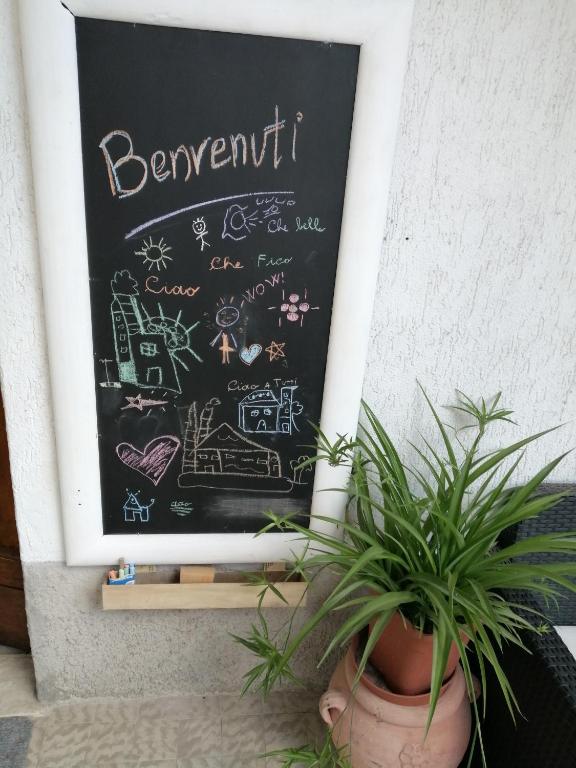 Benvenuti
Che bella
Che Fico
Ciao
WOW!
Ciao A Tutti
ciao